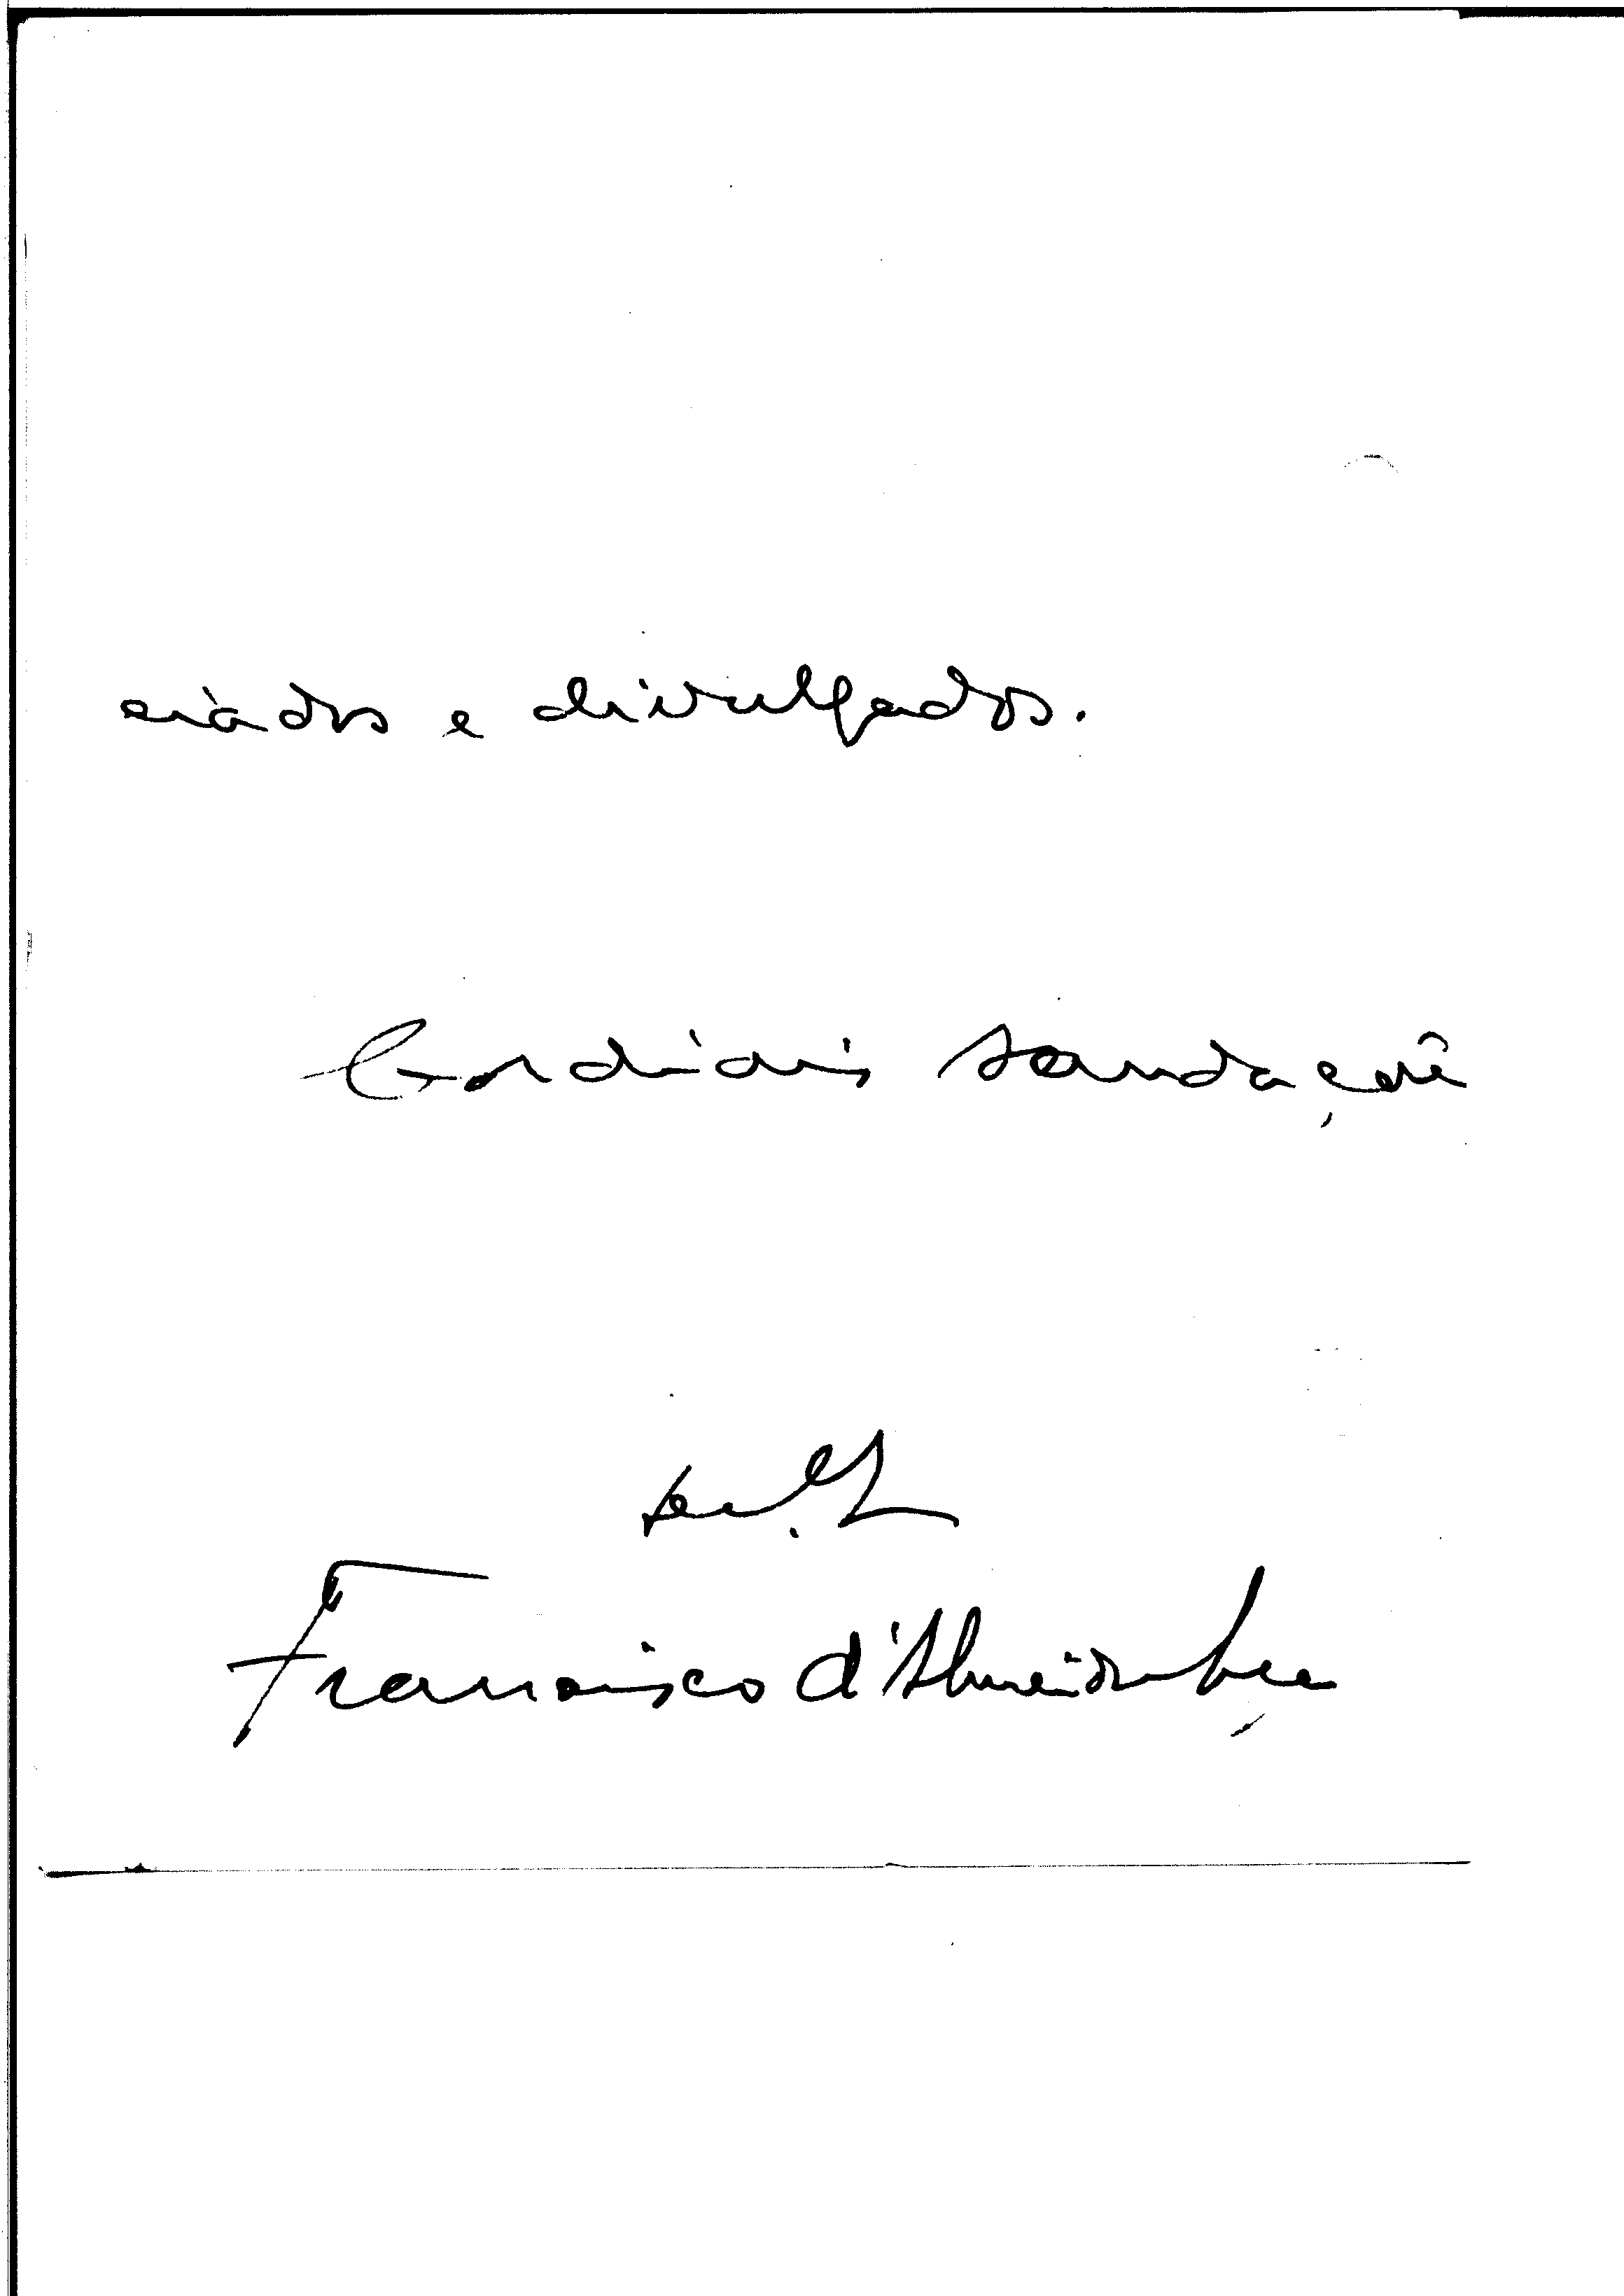 ciados e divulgados.
Cordiais saudações
Francisco d'Almeida